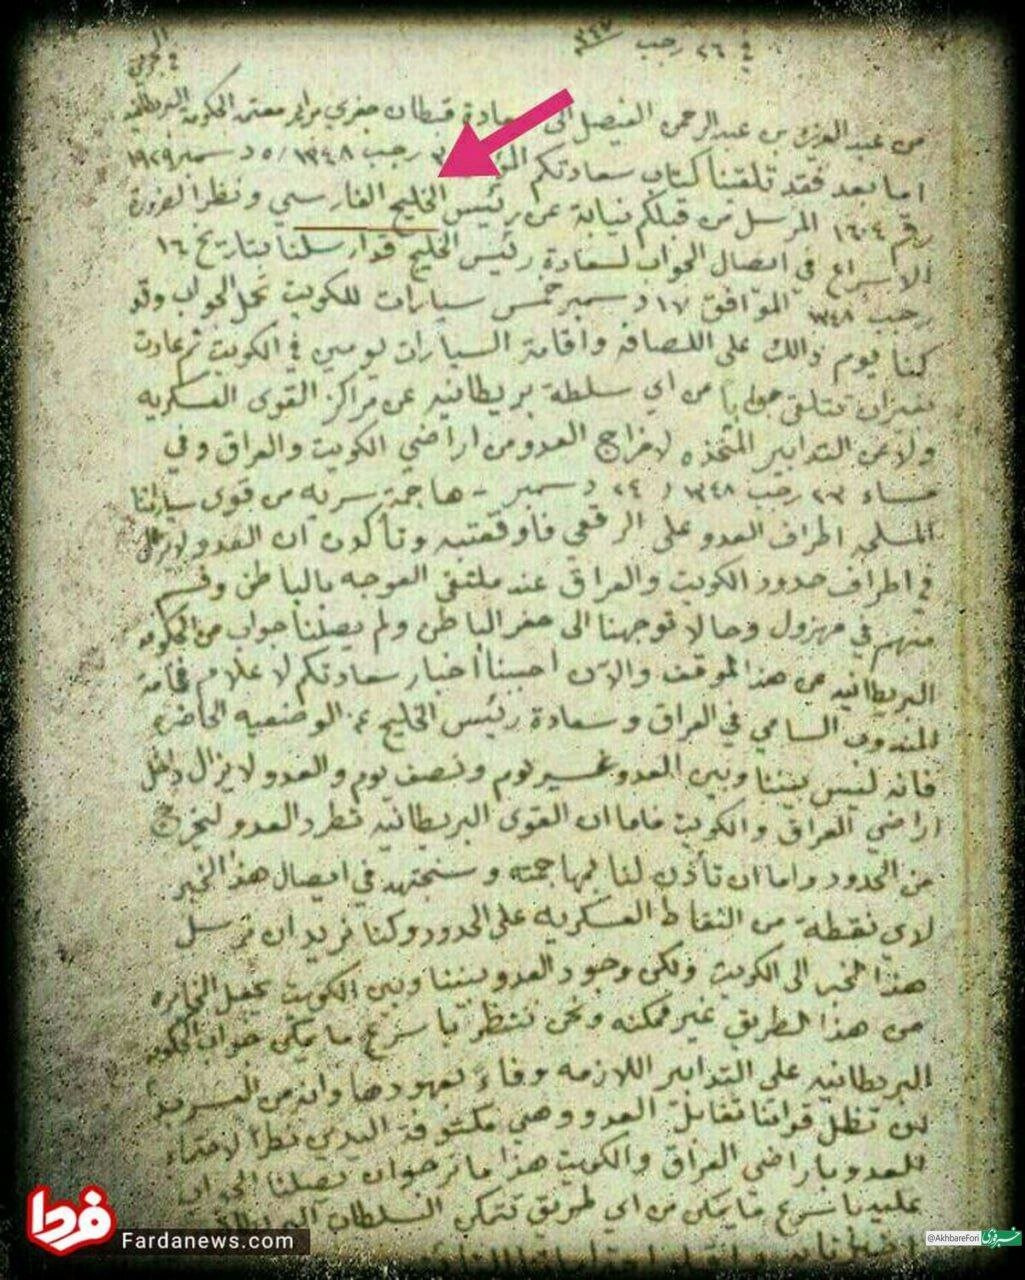 في ٢٦ رجب
من عبد العزيز بن عبد الرحمن الفيصل الى سعادة قبطان معتمد الحكومة البريطانية
اما بعد فقد تلقينا كتاب سعادتكم رجب ١٣٤٨ / ٥ دسمبر ١٩٢٩
رقم ١٦٠٤ المرسل من قبلكم نيابة عن رئيس الخليج الفارسي ونظرا لضرورة
الاسراع في ايصال الجواب لسعادة رئيس الخليج قد ارسلنا بتاريخ ١٦
رجب ١٣٤٨ الموافق ١٧ دسمبر خمس سيارات للكويت تحمل الجواب وقد
كنا يوم ذالك على اللصافه واقامة السيارات يومين في الكويت ثم عادت
بغير ان تتلقى جوابا من اي سلطة بريطانيه عن مراكز القوى العسكريه
ولا عن التدابير المتخذه لاخراج العدو من اراضي الكويت والعراق وفي
مساء ٢٣ رجب ١٣٤٨ / ٢٤ دسمبر - هاجمة سريه من قوى سياراتنا
المسلحه اطراف العدو على الرقعي فاوقعتبه وتأكدن ان العدو لايزال
في اطراف حدود الكويت والعراق عند ملتقى العوجه بالباطن وقسم
منهم في مهزول وحالا توجهنا الى حفر الباطن ولم يصلنا جواب من الحكومه
البريطانيه عن هذا الموقف والآن احببنا اخبار سعادتكم لاعلام فخامة
المندوب السامي في العراق وسعادة رئيس الخليج عن الوضعيه الحاضره
فانه ليس بيننا وبين العدو غير يوم ونصف يوم والعدو لايزال داخل
اراضي العراق والكويت فاما ان القوى البريطانيه تطرد العدو ليخرج
من الحدود واما ان تأذن لنا بمهاجمته وسنجتهد في ايصال هذا الخبر
لاي نقطة من النقاط العسكريه على الحدود وكنا نريد ان نرسل
هذا الخبر الى الكويت ولكن وجود العدو بيننا وبين الكويت يجعل المخابره
من هذا الطريق غير ممكنه ونحن ننتظر باسرع ما يمكن جواب الحكومه
البريطانيه على التدابير اللازمه وفاءً بعهودها وانه من الغريب
ان تظل قواتنا تقابل العدو وهي مكتوفة اليدي نظرا لاحتماء
العدو باراضي العراق والكويت هذا ما نرجوان يصلنا الجواب
عليه باسرع ما يمكن من اي طريق تتمكن السلطات
فردا
Fardanews.com
@AkhbareFori
خبرفوری